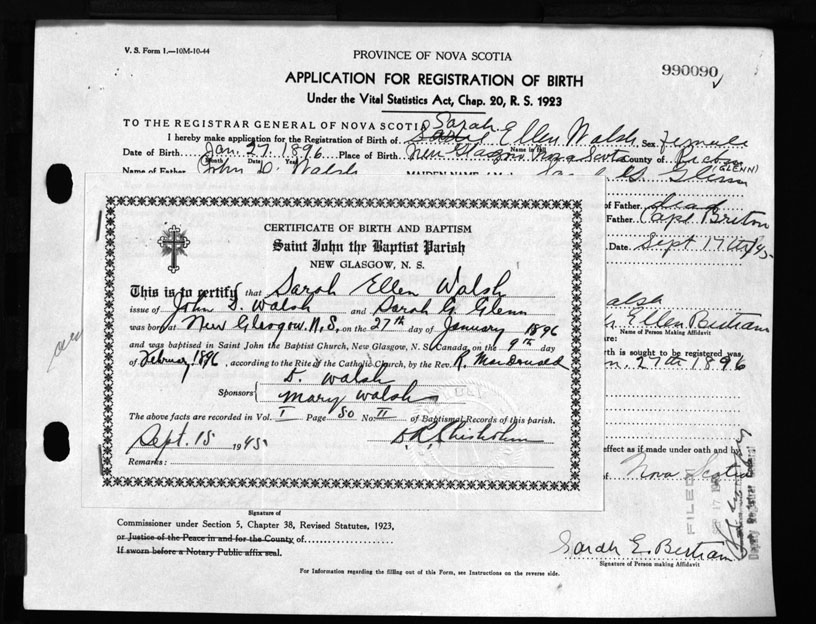 V. S. Form 1.—10M-10-44
PROVINCE OF NOVA SCOTIA
990090
APPLICATION FOR REGISTRATION OF BIRTH
Under the Vital Statistics Act, Chap. 20, R. S. 1923
TO THE REGISTRAR GENERAL OF NOVA SCOTIA
I hereby make application for the Registration of Birth of Sarah Ellen Walsh Sex female
Name in full
Date of Birth Jan. 27. 1896 Place of Birth New Glasgow Nova Scotia County of Pictou
Month Day Year
(GLENN)
Name of Father John D. Walsh MAIDEN NAME G. Glenn
of Father dead
Father Cape Breton
Date Sept 17th/45
CERTIFICATE OF BIRTH AND BAPTISM
Saint John the Baptist Parish
NEW GLASGOW, N. S.
This is to certify that Sarah Ellen Walsh
issue of John D. Walsh and Sarah G. Glenn
was born at New Glasgow, N.S. on the 27th day of January 1896
and was baptised in Saint John the Baptist Church, New Glasgow, N. S. Canada, on the 9th day
of February 1896, according to the Rite of the Catholic Church, by the Rev. R. MacDonald
Sponsors { D. Walsh
Mary Walsh
The above facts are recorded in Vol. I Page 50 No. II of Baptismal Records of this parish.
Sept. 15 1945 D. R. Chisholm
Remarks:
alsh
Ellen Bertram
Name of Person Making Affidavit
re:
th is sought to be registered was
n. 27th 1896
effect as if made under oath and by
of Nova Scotia
FILED
17
Deputy Registrar General
Signature of
Commissioner under Section 5, Chapter 38, Revised Statutes, 1923,
or Justice of the Peace in and for the County of
If sworn before a Notary Public affix seal.
Sarah E. Bertram
Signature of Person making Affidavit
For Information regarding the filling out of this Form, see Instructions on the reverse side.